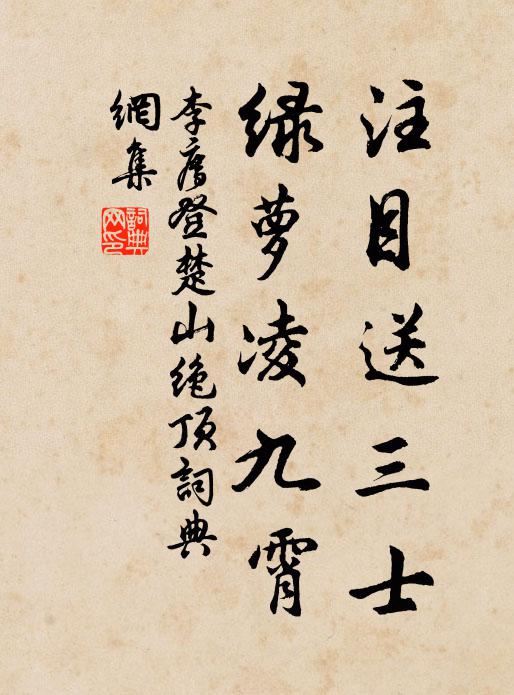 注目送三士
绿萝凌九霄
李廌登楚山绝顶詞典
網集
詞典
网印